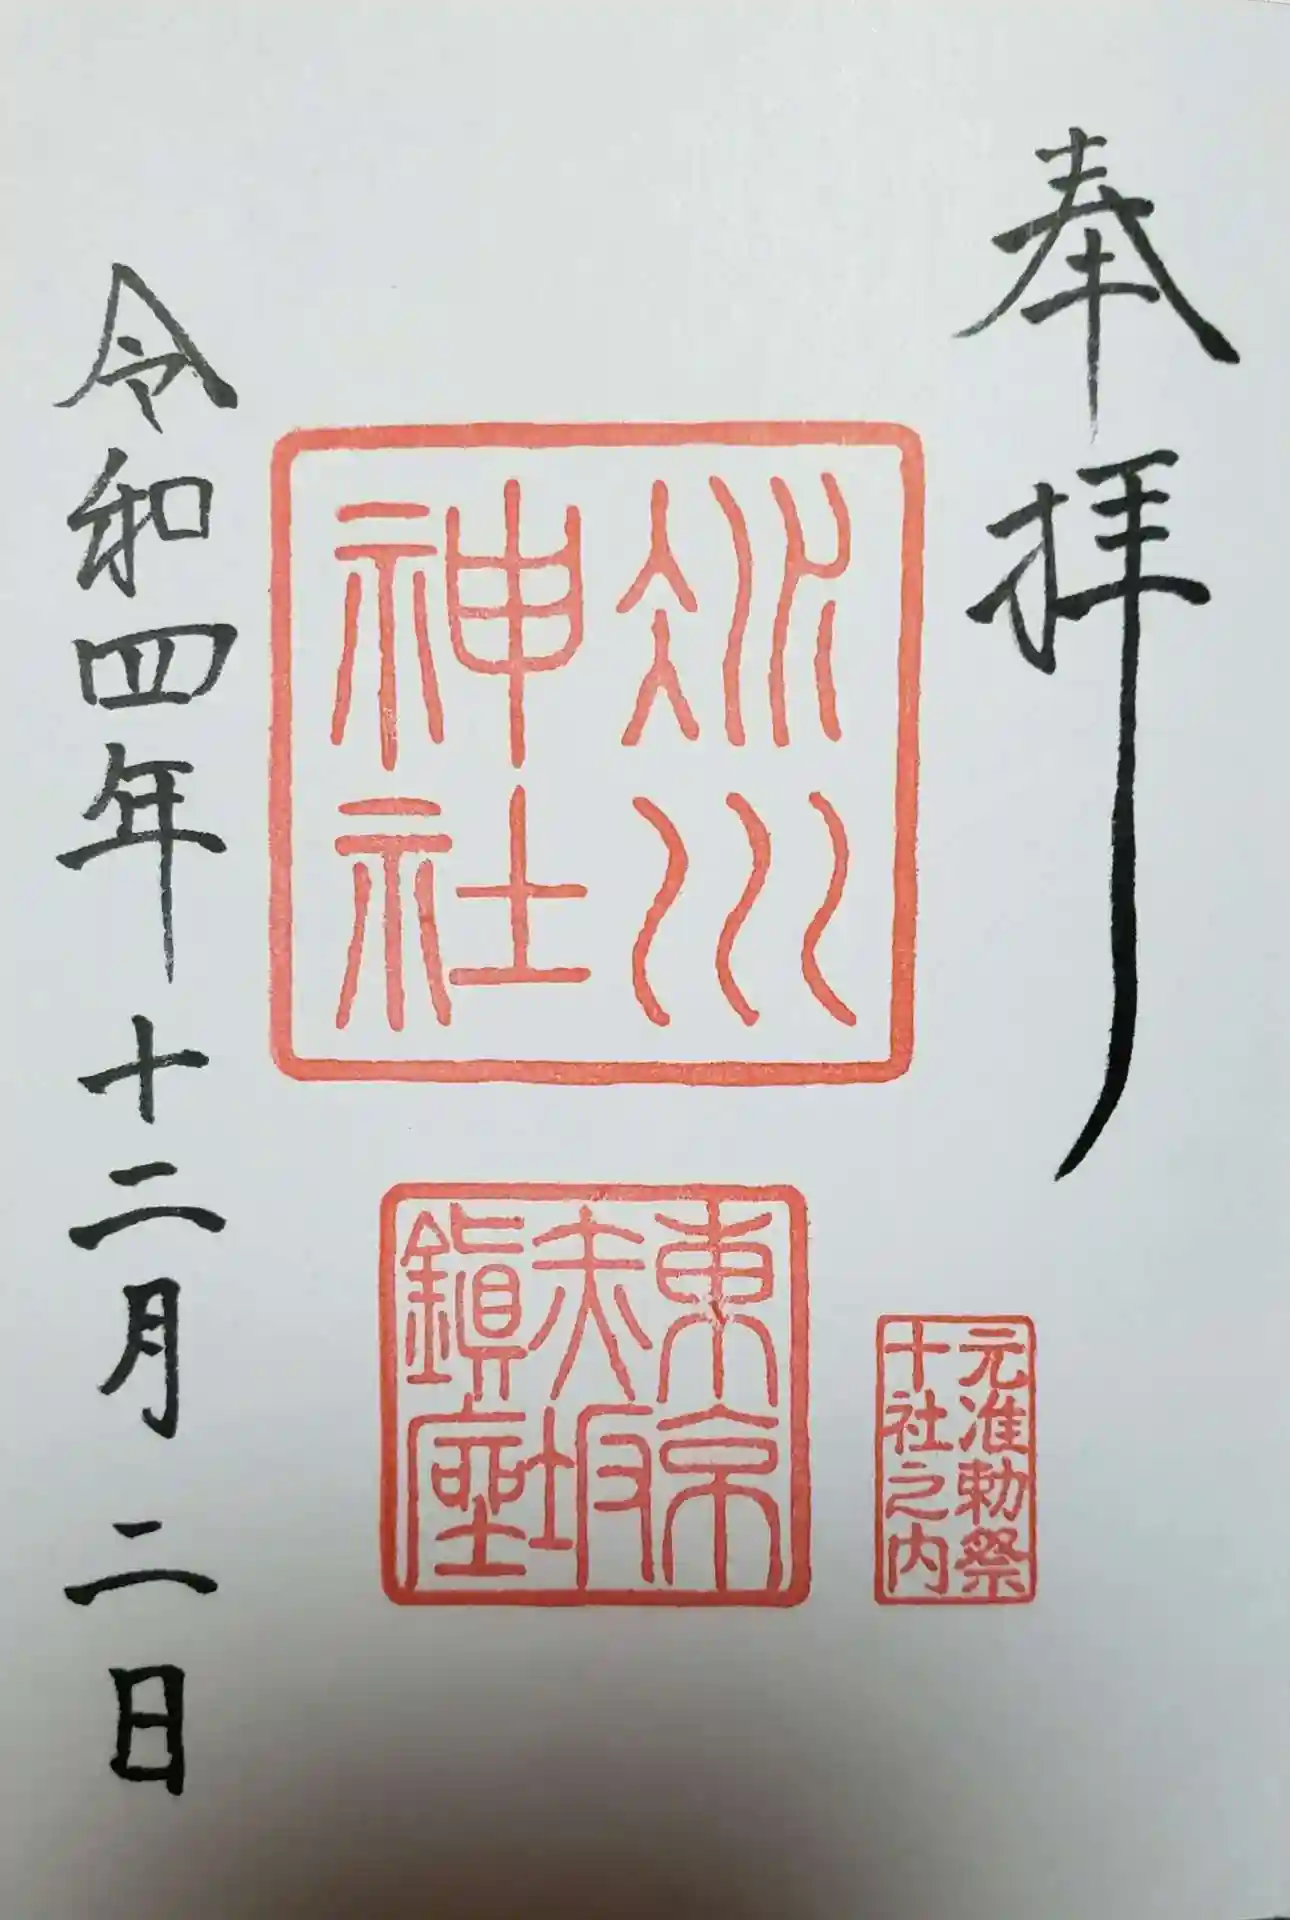 奉拝
氷川
神社
東京
赤坂
鎮座
元准勅祭
十社之内
令和四年十二月二日